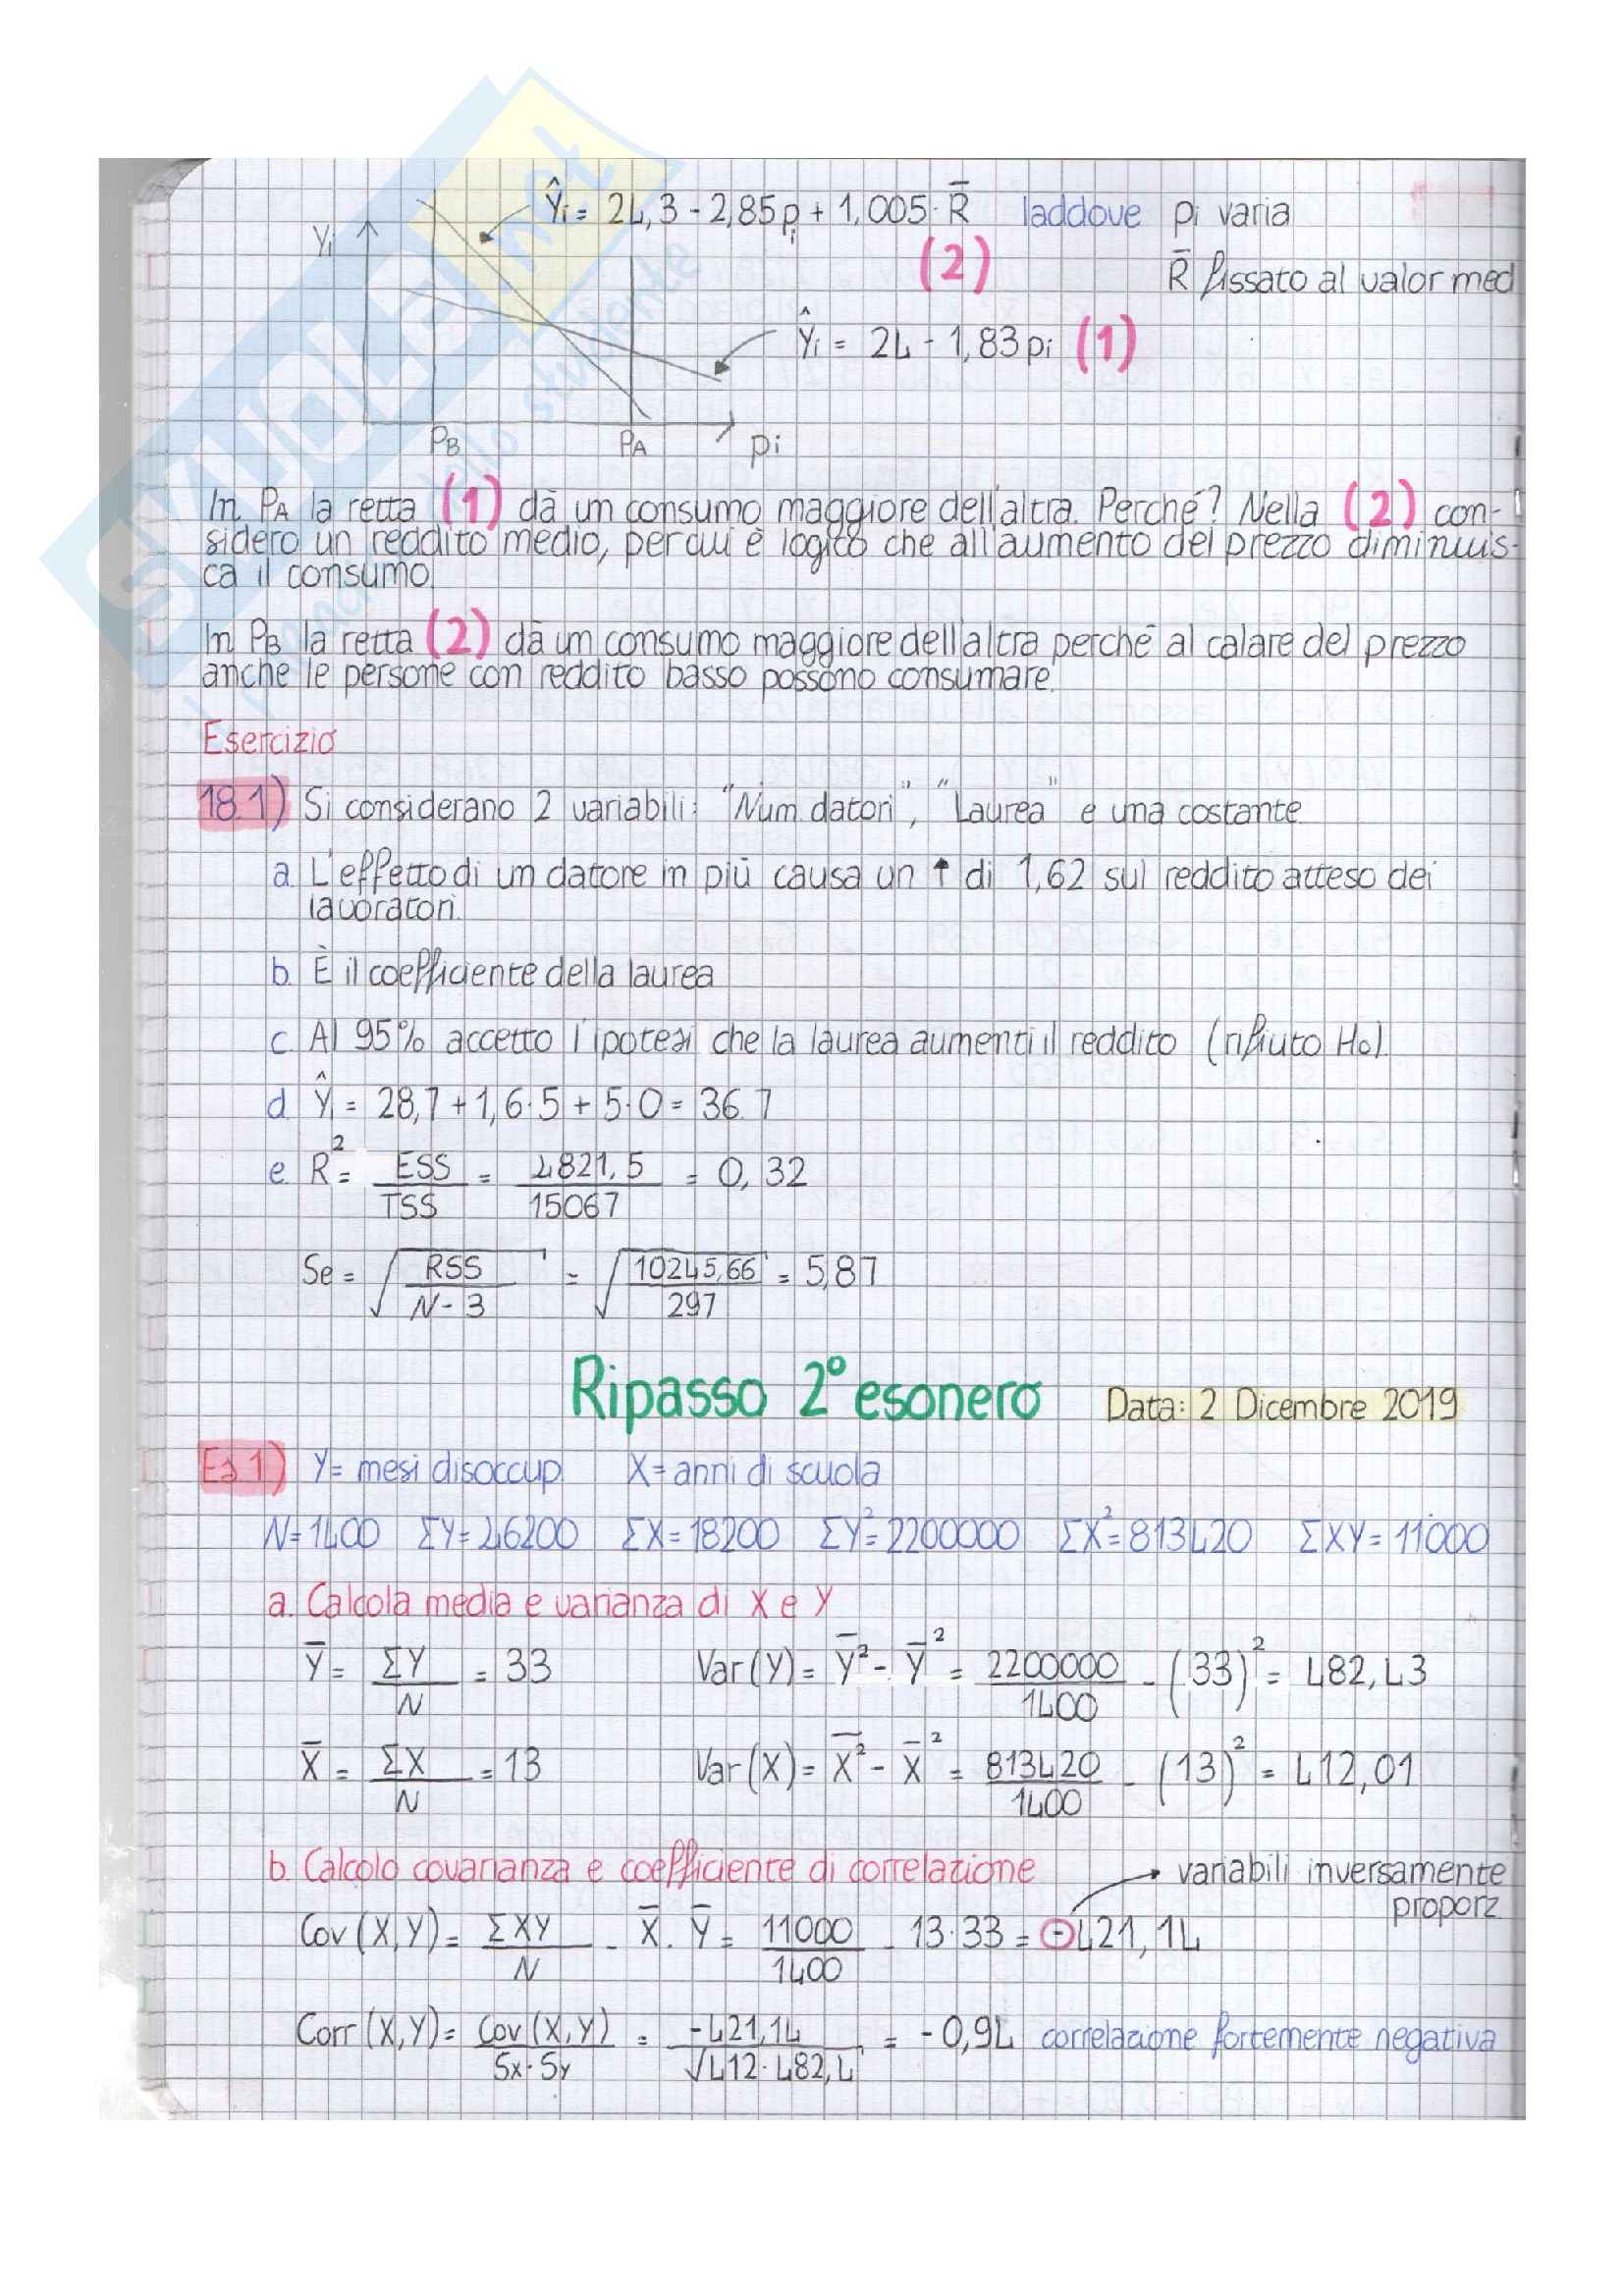 Ŷi = 24,3 - 2,85pi + 1,005·R̄ laddove pi varia
Yi
(2) R̄ fissato al valor med
Ŷi = 24 - 1,83pi (1)
PB PA pi
In PA la retta (1) dà un consumo maggiore dell'altra. Perché? Nella (2) con-
sidero un reddito medio, per cui è logico che all'aumento del prezzo diminuis-
ca il consumo.
In PB la retta (2) dà un consumo maggiore dell'altra perché al calare del prezzo
anche le persone con reddito basso possono consumare.
Esercizio
18.1) Si considerano 2 variabili: "Num. datori", "Laurea" e una costante
a. L'effetto di un datore in più causa un ↑ di 1,62 sul reddito atteso dei
lavoratori.
b. È il coefficiente della laurea
c. Al 95% accetto l'ipotesi che la laurea aumenti il reddito (rifiuto H0).
d. Ŷi = 28,7 + 1,6·5 + 5·0 = 36.7
e. R² = ESS/TSS = 4821,5/15067 = 0,32
Se = √(RSS/N-3) = √(10245,66/297) = 5,87
Ripasso 2° esonero Data: 2 Dicembre 2019
Es.1) Y= mesi disoccup. X= anni di scuola
N=1400 ΣY=46200 ΣX=18200 ΣY²=2200000 ΣX²=813420 ΣXY=11000
a. Calcola media e varianza di X e Y
Ȳ = ΣY/N = 33 Var(Y) = Y̅² - Ȳ² = 2200000/1400 - (33)² = 482,43
X̄ = ΣX/N = 13 Var(X) = X̅² - X̄² = 813420/1400 - (13)² = 412,01
b. Calcolo covarianza e coefficiente di correlazione → variabili inversamente
proporz.
Cov(X,Y) = ΣXY/N - X̄·Ȳ = 11000/1400 - 13·33 = -421,14
Corr(X,Y) = Cov(X,Y)/Sx·Sy = -421,14/√412·482,4 = -0,94 correlazione fortemente negativa